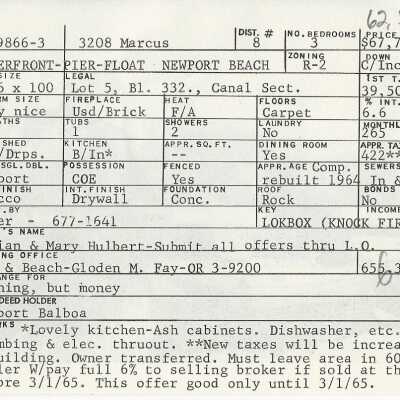 62,
DIST. # NO. BEDROOMS PRICE
9866-3 3208 Marcus 8 3 $67,7
ZONING DOWN
ERFRONT-PIER-FLOAT NEWPORT BEACH R-2 C/Inc
SIZE LEGAL 1ST T.
x 100 Lot 5, Bl. 332., Canal Sect. 39,50
RM SIZE FIREPLACE HEAT FLOORS % INT.
y nice Usd/Brick F/A Carpet 6.6
THS TUBS SHOWERS LAUNDRY MONTHL
1 2 No 265
SHED KITCHEN APPR. SQ. FT. DINING ROOM APP. TAX
/Drps. B/In* -- Yes 422**
SGL. DBL. POSSESSION FENCED APPR. AGE Comp. SEWERS
port COE Yes rebuilt 1964 In &
FINISH INT. FINISH FOUNDATION ROOF BONDS
cco Drywall Conc. Rock No
. BY KEY INCOME
er - 677-1641 LOKBOX (KNOCK FIR
'S NAME
ian & Mary Hulbert-Submit all offers thru L.O.
NG OFFICE
& Beach-Gloden M. Fay-OR 3-9200 655,3
ANGE FOR
hing, but money
DEED HOLDER
port Balboa
RKS *Lovely kitchen-Ash cabinets. Dishwasher, etc.
mbing & elec. thruout. **New taxes will be increa
uilding. Owner transferred. Must leave area in 60
ler W/pay full 6% to selling broker if sold at th
ore 3/1/65. This offer good only until 3/1/65.